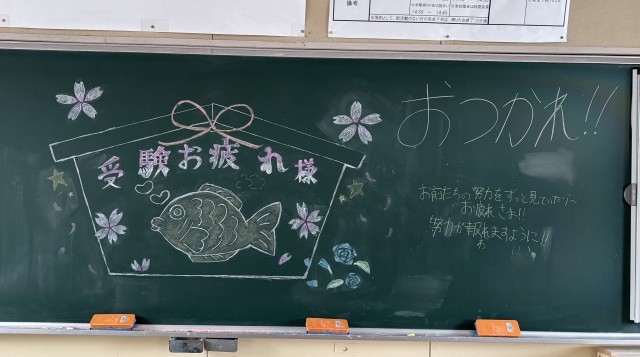 備考
14:30 ～ 14:45
受験お疲れ様
おつかれ!!
お前たちの努力をずっと見ていたゾ～
お疲れさま!!
努力が報れますように!!
わ